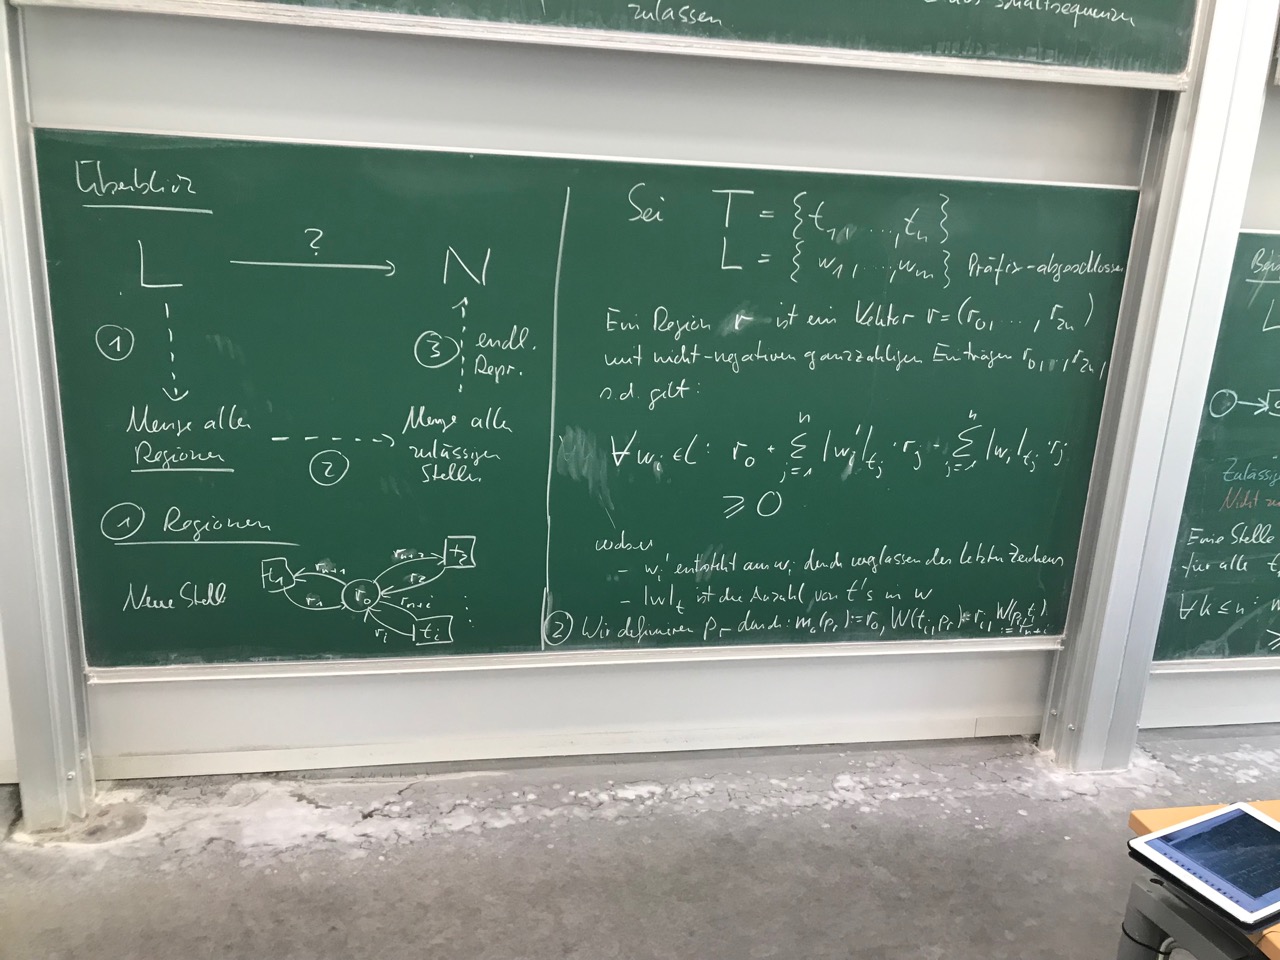 zulassen
Überblick
L ? N
①
③ endl.
Repr.
Menge aller
Regionen
②
Menge aller
zulässigen
Stellen.
① Regionen
Neue Stelle
t₁ rₙ₊₁ r₁ r₀ rₙ₊₂ r₂ t₂ rₙ₊ᵢ rᵢ tᵢ
Sei T = {t₁, ..., tₙ}
L = {w₁, ..., wₘ} Präfix-abgeschlossen
Ein Region r ist ein Vektor r = (r₀, ..., r₂ₙ)
mit nicht-negativen ganzzahligen Einträgen r₀, ..., r₂ₙ,
s.d. gilt:
∀ wᵢ ∈ L: r₀ + ∑ⱼ₌₁ⁿ |wᵢ'|ₜⱼ · rⱼ - ∑ⱼ₌₁ⁿ |wᵢ|ₜⱼ · rⱼ
≥ 0
wobei
- wᵢ' entsteht aus wᵢ durch weglassen des letzten Zeichens
- |w|ₜ ist die Anzahl von t's in w
② Wir definieren pᵣ durch: m₀(pᵣ) := r₀, W(tᵢ, pᵣ) := rᵢ, W(pᵣ, tᵢ) := rₙ₊ᵢ
L
Zulässig
Nicht
Eine Stelle
für alle t
∀ k ≤ n : m
≥